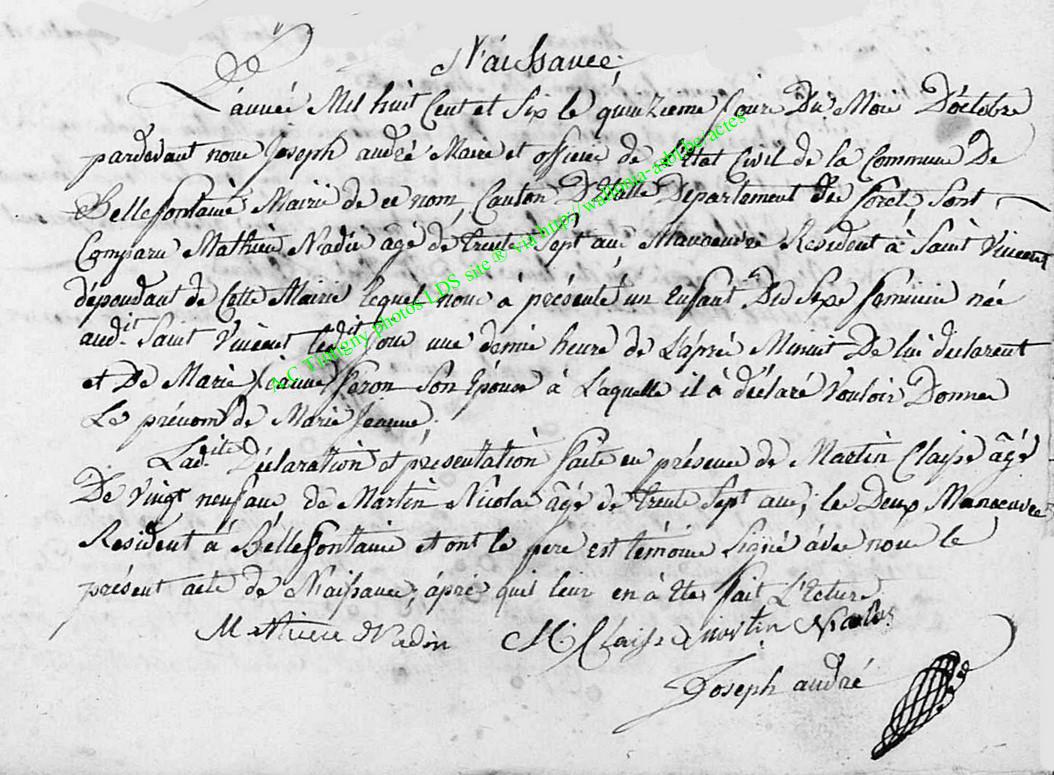 Naissance.
De
L'année Mil huit Cent et Six le quinzieme Jour Du Moi D'octobre
pardevant nous Joseph andré Maire et officié de L'état Civil de la Commune De
Bellefontaine Mairie de ce nom, Canton D'Etalle Département des foret, Sont
Comparu Mathieu Nadin agé de trente Sept ans Manoeuvre Resident à Saint Vincent
dépendant de Cette Mairie Lequel nous à présenté un Enfant Du Sexe feminin née
audit Saint Vincent ledit Jour une demie heure de L'apré Minuit De lui declarent
et De Marie Jeanne feron Son Epouse à Laquelle il à déclaré Vouloir Donner
Le prénom de Marie Jeanne.
Ladite Déclaration et présentation faite en présence de Martin Claise âgé
De vingt neuf ans de Martin Nicolas âgé de trente Sept ans, les Deux Manoeuvres
Resident à Bellefontaine et ont le pere est témoins Signé avec nous le
présent acte de Naissance, âpré qu'il leur en à Eté fait L'ecture
Mathieu Nadin M. Claise martin Nicolas
Joseph andré
AC Tintigny photos LDS site ® via http://wallonia-asbl.be/actes